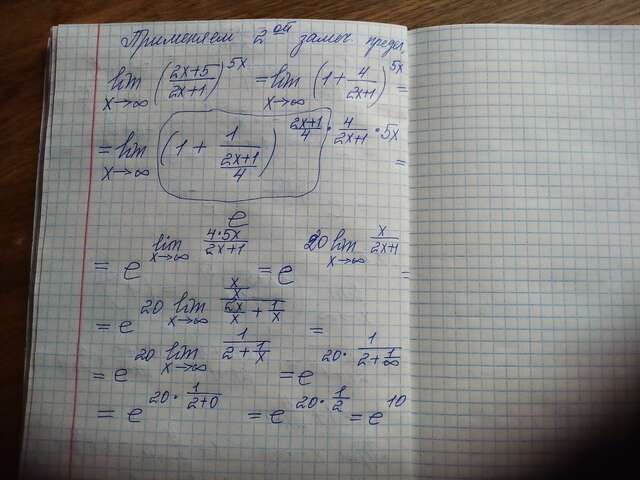 Применяем 2ой замеч. предел
lim x→∞ ((2x+5)/(2x+1))^(5x) = lim x→∞ (1 + 4/(2x+1))^(5x) =
= lim x→∞ (1 + 1/((2x+1)/4))^((2x+1)/4 · 4/(2x+1) · 5x) =
e
= e^(lim x→∞ (4·5x)/(2x+1)) = e^(20 lim x→∞ x/(2x+1)) =
= e^(20 lim x→∞ (x/x)/(2x/x + 1/x)) =
= e^(20 lim x→∞ 1/(2 + 1/x)) = e^(20 · 1/(2 + 1/∞))
= e^(20 · 1/(2+0)) = e^(20 · 1/2) = e^10